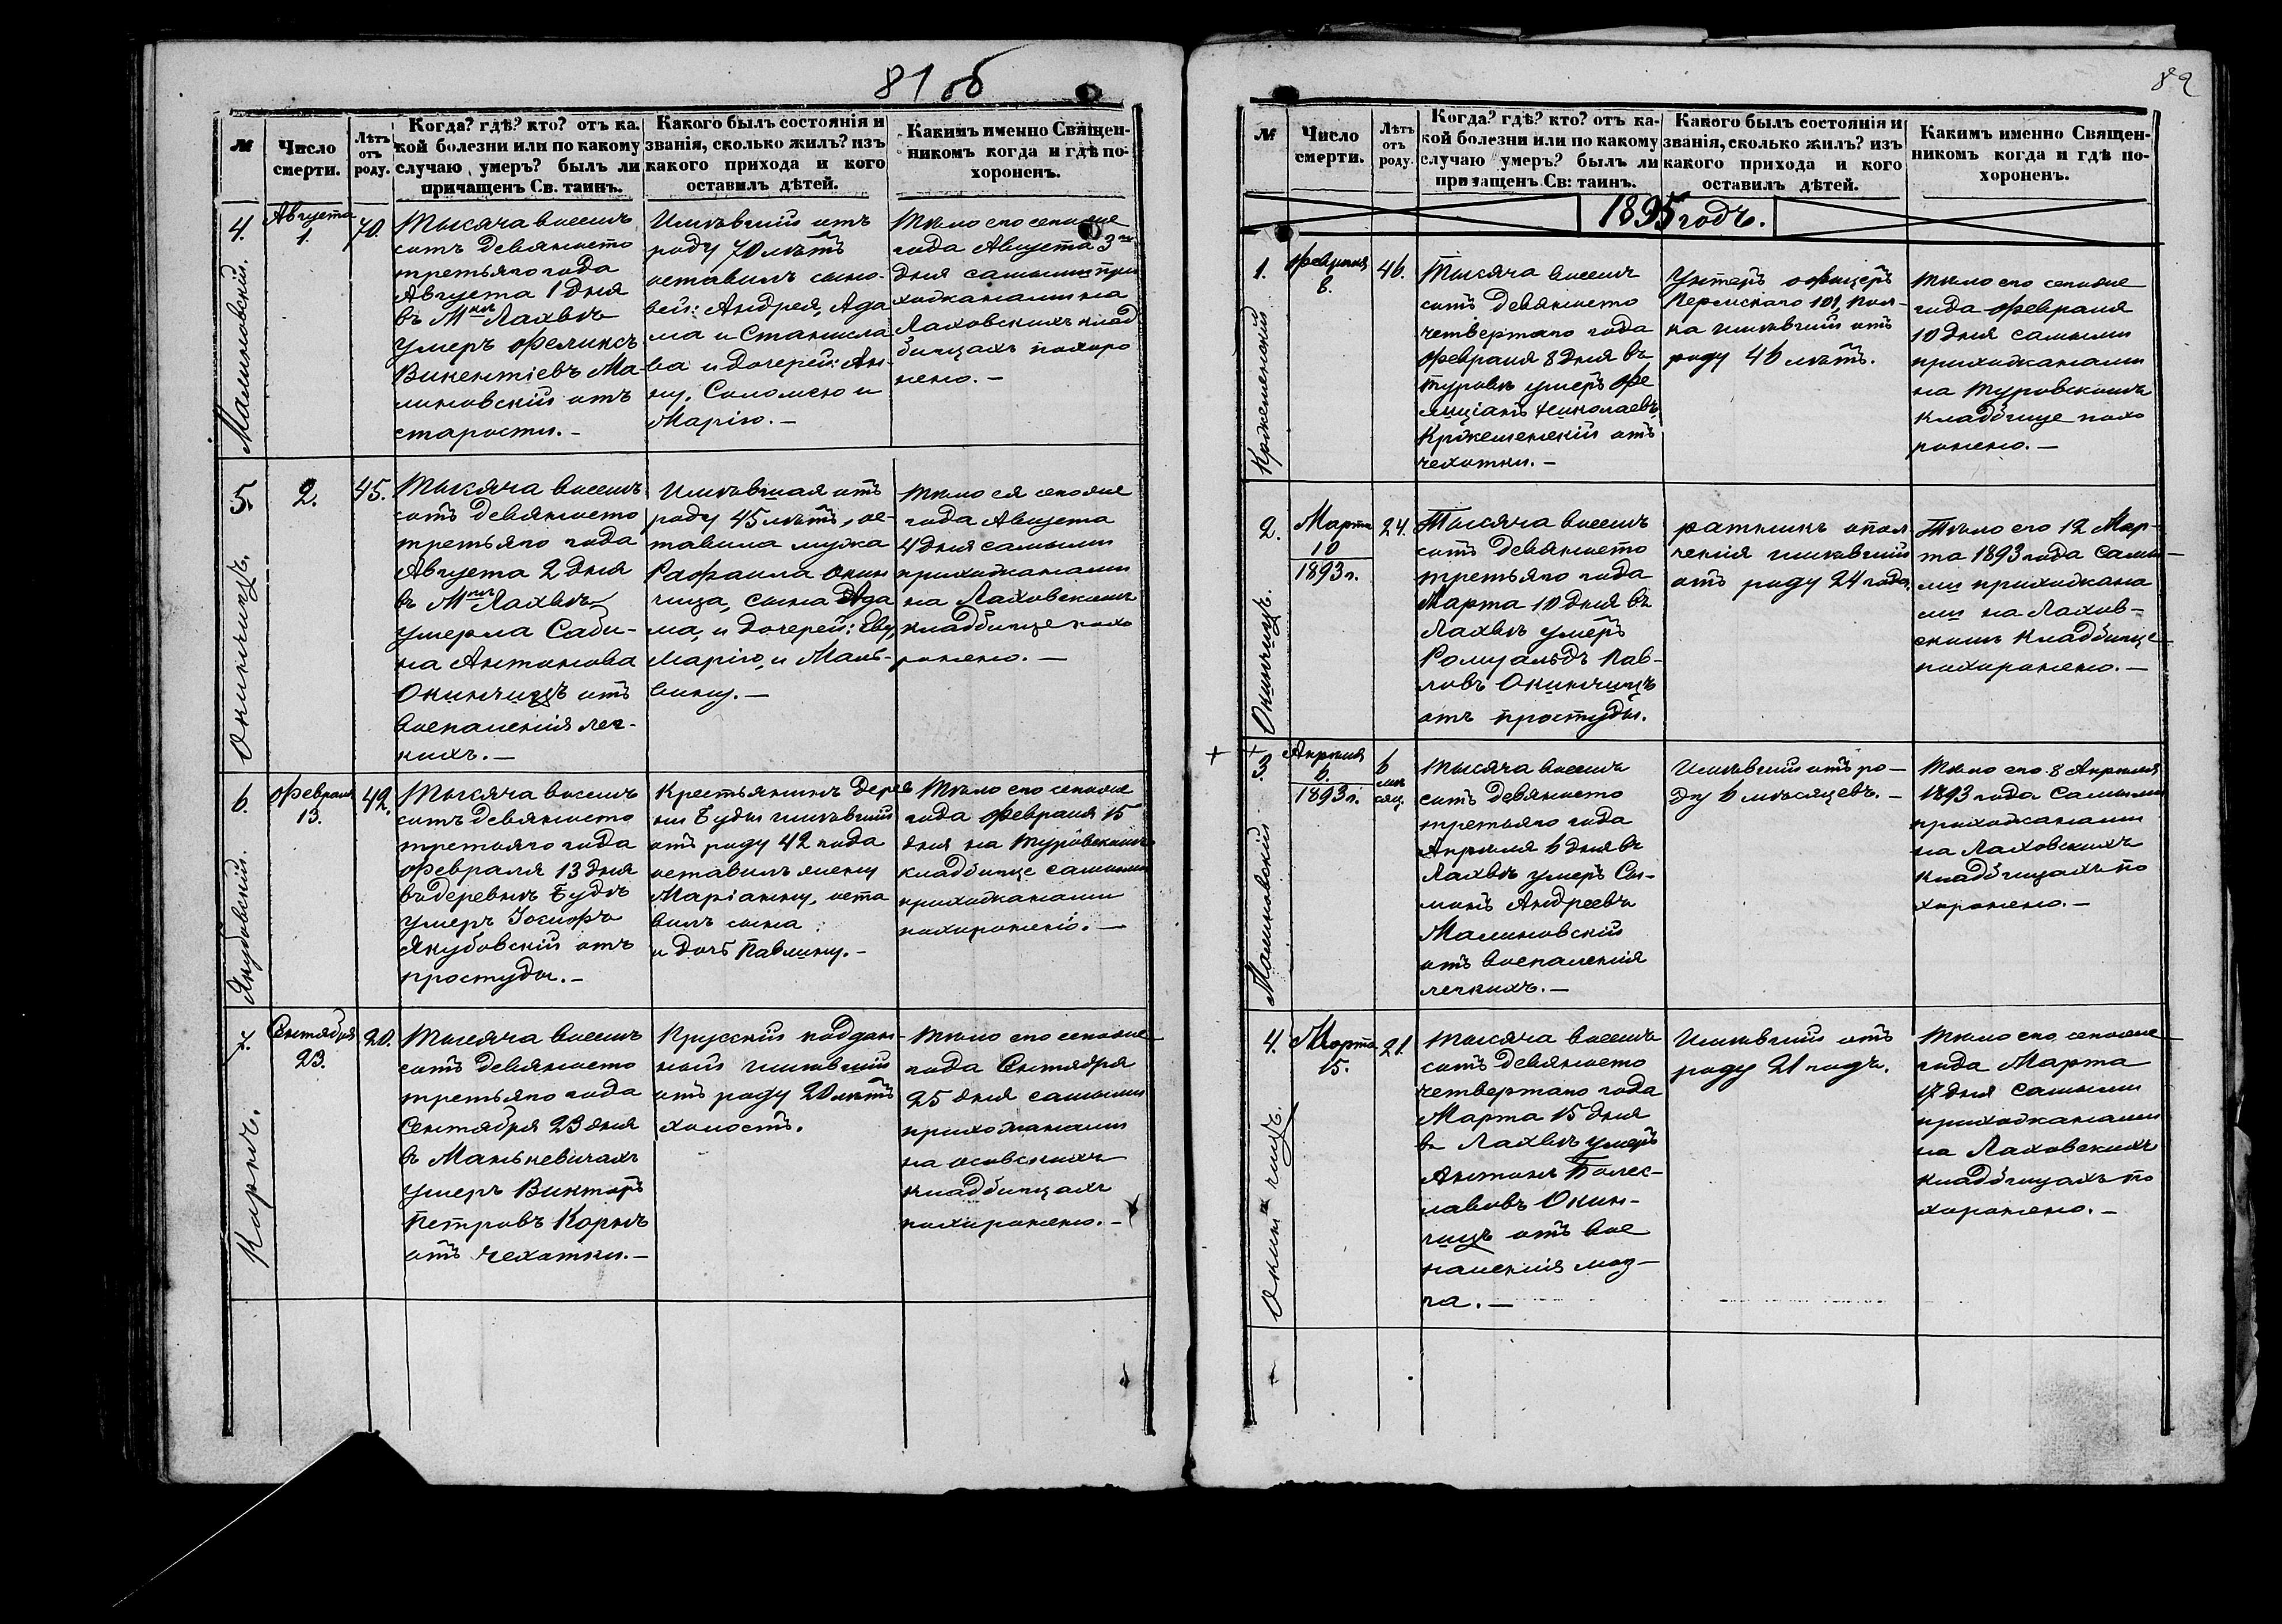 81 об
№
Число
смерти.
Лѣтъ
отъ
роду.
Когда? гдѣ? кто? отъ ка-
кой болезни или по какому
случаю умеръ? былъ ли
причащенъ Св. таинъ.
Какого былъ состоянія и
званія, сколько жилъ? изъ
какого прихода и кого
оставилъ дѣтей.
Какимъ именно Священ-
никомъ когда и гдѣ по-
хороненъ.
4.
Малиновскій.
Августа
1.
70.
Тысяча восемь
сотъ девяносто
третьяго года
Августа 1 дня
въ Мкѣ Лахвѣ
умеръ Феликсъ
Викентіевъ Ма-
линовскій отъ
старости. –
Имѣвшій отъ
роду 70 лѣтъ
оставилъ сыно-
вей: Андрея, Ада
ма и Станисла
ва и дочерей: Ан-
ну, Саломею и
Марію. –
Тѣло его сего же
года Августа 3го
дня самыми при
хожанами на
Лаховскихъ клад
бищахъ похоро
нено. –
5
Окинчицъ.
2.
45.
Тысяча восемь
сотъ девяносто
третьяго года
Августа 2 дня
въ Мкѣ Лахвѣ
умерла Саби-
на Антонова
Окинчицъ отъ
воспаленія лег-
кихъ. –
Имѣвшая отъ
роду 45 лѣтъ, ос-
тавила мужа
Рафаила Окин
чица, сына Ада
ма, и дочерей: Еву,
Марію, и Маль-
вину. –
Тѣло ея сего же
года Августа
4 дня самыми
прихожанами
на Лаховскомъ
кладбище похо
ронено. –
6.
Якубовскій.
Февраля
13.
42.
Тысяча восемь
сотъ девяносто
третьяго года
Февраля 13 дня
въ деревнѣ Будѣ
умеръ Іосифъ
Якубовскій отъ
простуды. –
Крестьянинъ дерев
ни Буды имѣвшій
отъ роду 42 года
оставилъ жену
Маріанну, оста
вилъ сына
и дочь Павлину. –
Тѣло его сего же
года Февраля 15
дня на Туровскомъ
кладбище самыми
прихожанами
похоронено. –
7.
Корнъ.
Сентября
23.
20.
Тысяча восемь
сотъ девяносто
третьяго года
Сентября 23 дня
въ Манькевичахъ
умеръ Викторъ
Петровъ Корнъ
отъ чехотки. –
Прусскій поддан-
ный имѣвшій
отъ роду 20 лѣтъ
холостъ.
Тѣло его сего же
года Сентября
25 дня самыми
прихожанами
на Осовскихъ
кладбищахъ
похоронено. –
82
№
Число
смерти.
Лѣтъ
отъ
роду.
Когда? гдѣ? кто? отъ ка-
кой болезни или по какому
случаю умеръ? былъ ли
причащенъ Св: таинъ.
Какого былъ состоянія и
званія, сколько жилъ? изъ
какого прихода и кого
оставилъ дѣтей.
Какимъ именно Священ-
никомъ когда и гдѣ по-
хороненъ.
1895 годъ.
1.
Февраля
8.
46.
Тысяча восемь
сотъ девяносто
четвертаго года
Февраля 8 дня въ
Туровѣ умеръ Фе
лиціанъ Николаевъ
отъ
чехотки. –
Унтеръ офицеръ
Пермскаго 101, пол-
ка имѣвшій отъ
роду 46 лѣтъ.
Тѣло его сего же
года Февраля
10 дня самыми
прихожанами
на Туровскомъ
кладбище похо
ронено. –
2.
Окинчицъ.
Марта
10
1893 г.
24.
Тысяча восемь
сотъ девяносто
третьяго года
Марта 10 дня въ
Лахвѣ умеръ
Ромуальдъ Пав-
ловъ Окинчицъ
отъ простуды.
ратникъ опол
ченія имѣвшій
отъ роду 24 года.
Тѣло его 12 Мар-
та 1893 года самы-
ми прихожана
ми на Лахов-
скомъ кладбище
похоронено. –
+
3.
Малиновскій
Апрѣля
6.
1893 г.
6
мѣ
сяц.
Тысяча восемь
сотъ девяносто
третьяго года
Апрѣля 6 дня въ
Лахвѣ умеръ Си-
монъ Андреевъ
Малиновскій
отъ воспаленія
легкихъ. –
Имѣвшій отъ ро-
ду 6 мѣсяцевъ. –
Тѣло его 8 Апрѣля
1893 года самыми
прихожанами
на Лаховскихъ
кладбищахъ по
хоронено. –
4.
Окинчицъ.
Марта
15.
21.
Тысяча восемь
сотъ девяносто
четвертаго года
Марта 15 дня
въ Лахвѣ умеръ
Антонъ Болес-
лавовъ Окин-
чицъ отъ вос
паленія моз-
га. –
Имѣвшій отъ
роду 21 годъ.
Тѣло его сего же
года Марта
17 дня самыми
прихожанами
на Лаховскихъ
кладбищахъ по
хоронено. –